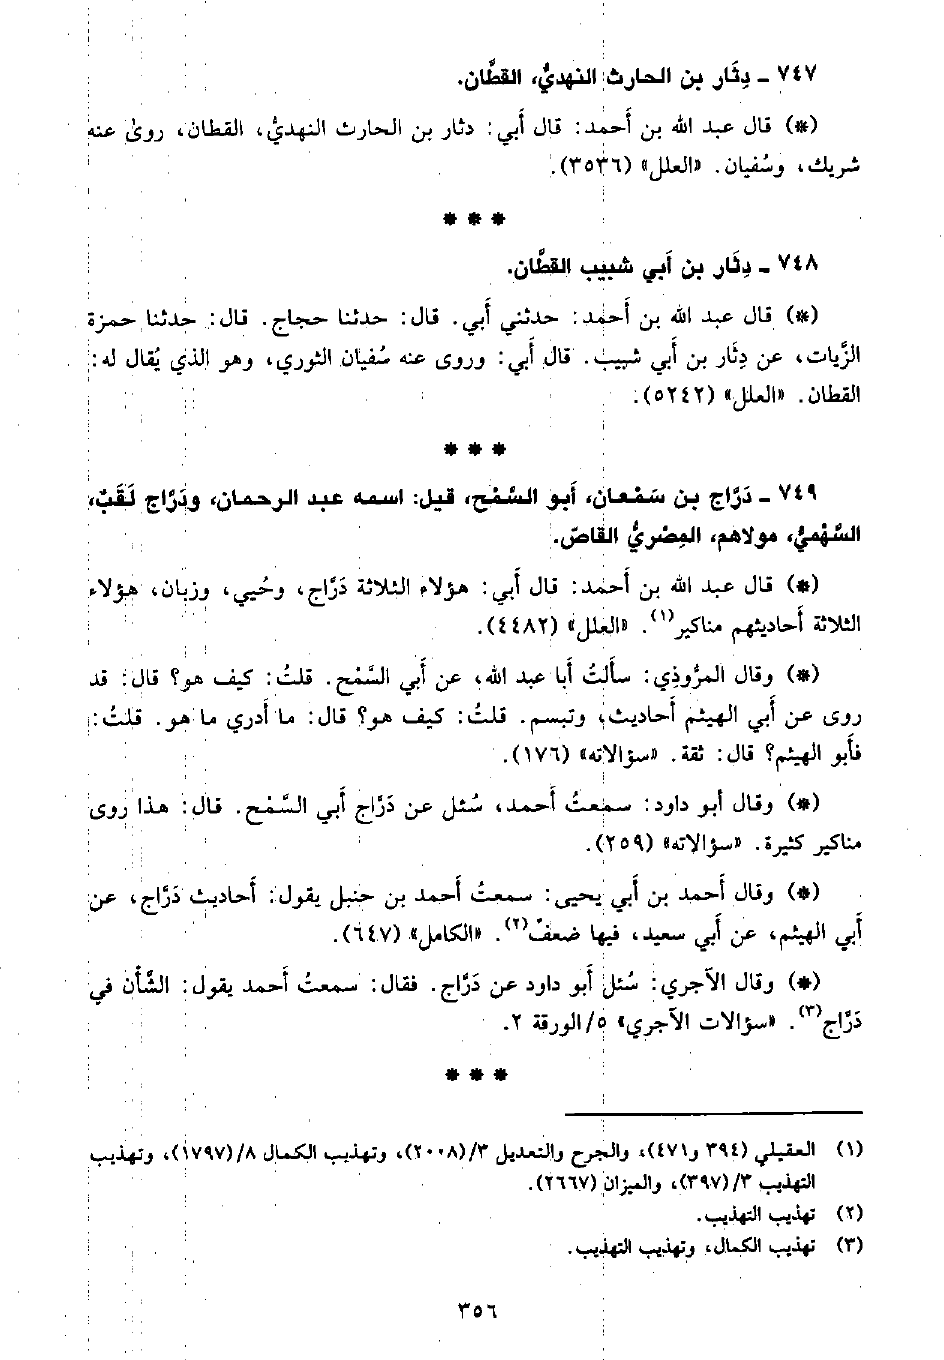 ٧٤٧ ـ دِثَار بن الحارث النهديُّ، القطَّان.
(*) قال عبد الله بن أَحمد: قال أَبي: دثار بن الحارث النهديُّ، القطان، روىٰ عنه
شريك، وسُفيان. «العلل» (٣٥٣٦).
* * *
٧٤٨ ـ دِثَار بن أَبي شبيب القطَّان.
(*) قال عبد الله بن أَحمد: حدثني أَبي. قال: حدثنا حجاج. قال: حدثنا حمزة
الزَّيات، عن دِثَار بن أَبي شبيب. قال أَبي: وروى عنه سُفيان الثوري، وهو الذي يُقال له:
القطان. «العلل» (٥٢٤٢).
* * *
٧٤٩ ـ دَرَّاج بن سَمْعان، أَبو السَّمْح، قيل: اسمه عبد الرحمان، ودَرَّاج لَقَبٌ،
السَّهْميُّ، مولاهم، المِصْريُّ القاصّ.
(*) قال عبد الله بن أَحمد: قال أَبي: هؤلاء الثلاثة دَرَّاج، وحُيي، وزبان، هؤلاء
الثلاثة أَحاديثهم مناكير(١). «العلل» (٤٤٨٢).
(*) وقال المرُّوذي: سأَلتُ أَبا عبد الله، عن أَبي السَّمْح. قلتُ: كيف هو؟ قال: قد
روى عن أَبي الهيثم أَحاديث، وتبسم. قلتُ: كيف هو؟ قال: ما أَدري ما هو. قلتُ:
فأَبو الهيثم؟ قال: ثقة. «سؤالاته» (١٧٦).
(*) وقال أَبو داود: سمعتُ أَحمد، سُئل عن دَرَّاج أَبي السَّمْح. قال: هذا روى
مناكير كثيرة. «سؤالاته» (٢٥٩).
(*) وقال أَحمد بن أَبي يحيى: سمعتُ أَحمد بن حنبل يقول: أَحاديث دَرَّاج، عن
أَبي الهيثم، عن أَبي سعيد، فيها ضعفٌ(٢). «الكامل» (٦٤٧).
(*) وقال الآجري: سُئل أَبو داود عن دَرَّاج. فقال: سمعتُ أَحمد يقول: الشَّأْن في
دَرَّاج(٣). «سؤالات الآجري» ٥/الورقة ٢.
* * *
(١) العقيلي (٣٩٤ و٤٧١)، والجرح والتعديل ٣/(٢٠٠٨)، وتهذيب الكمال ٨/(١٧٩٧)، وتهذيب
التهذيب ٣/(٣٩٧)، والميزان (٢٦٦٧).
(٢) تهذيب التهذيب.
(٣) تهذيب الكمال، وتهذيب التهذيب.
٣٥٦